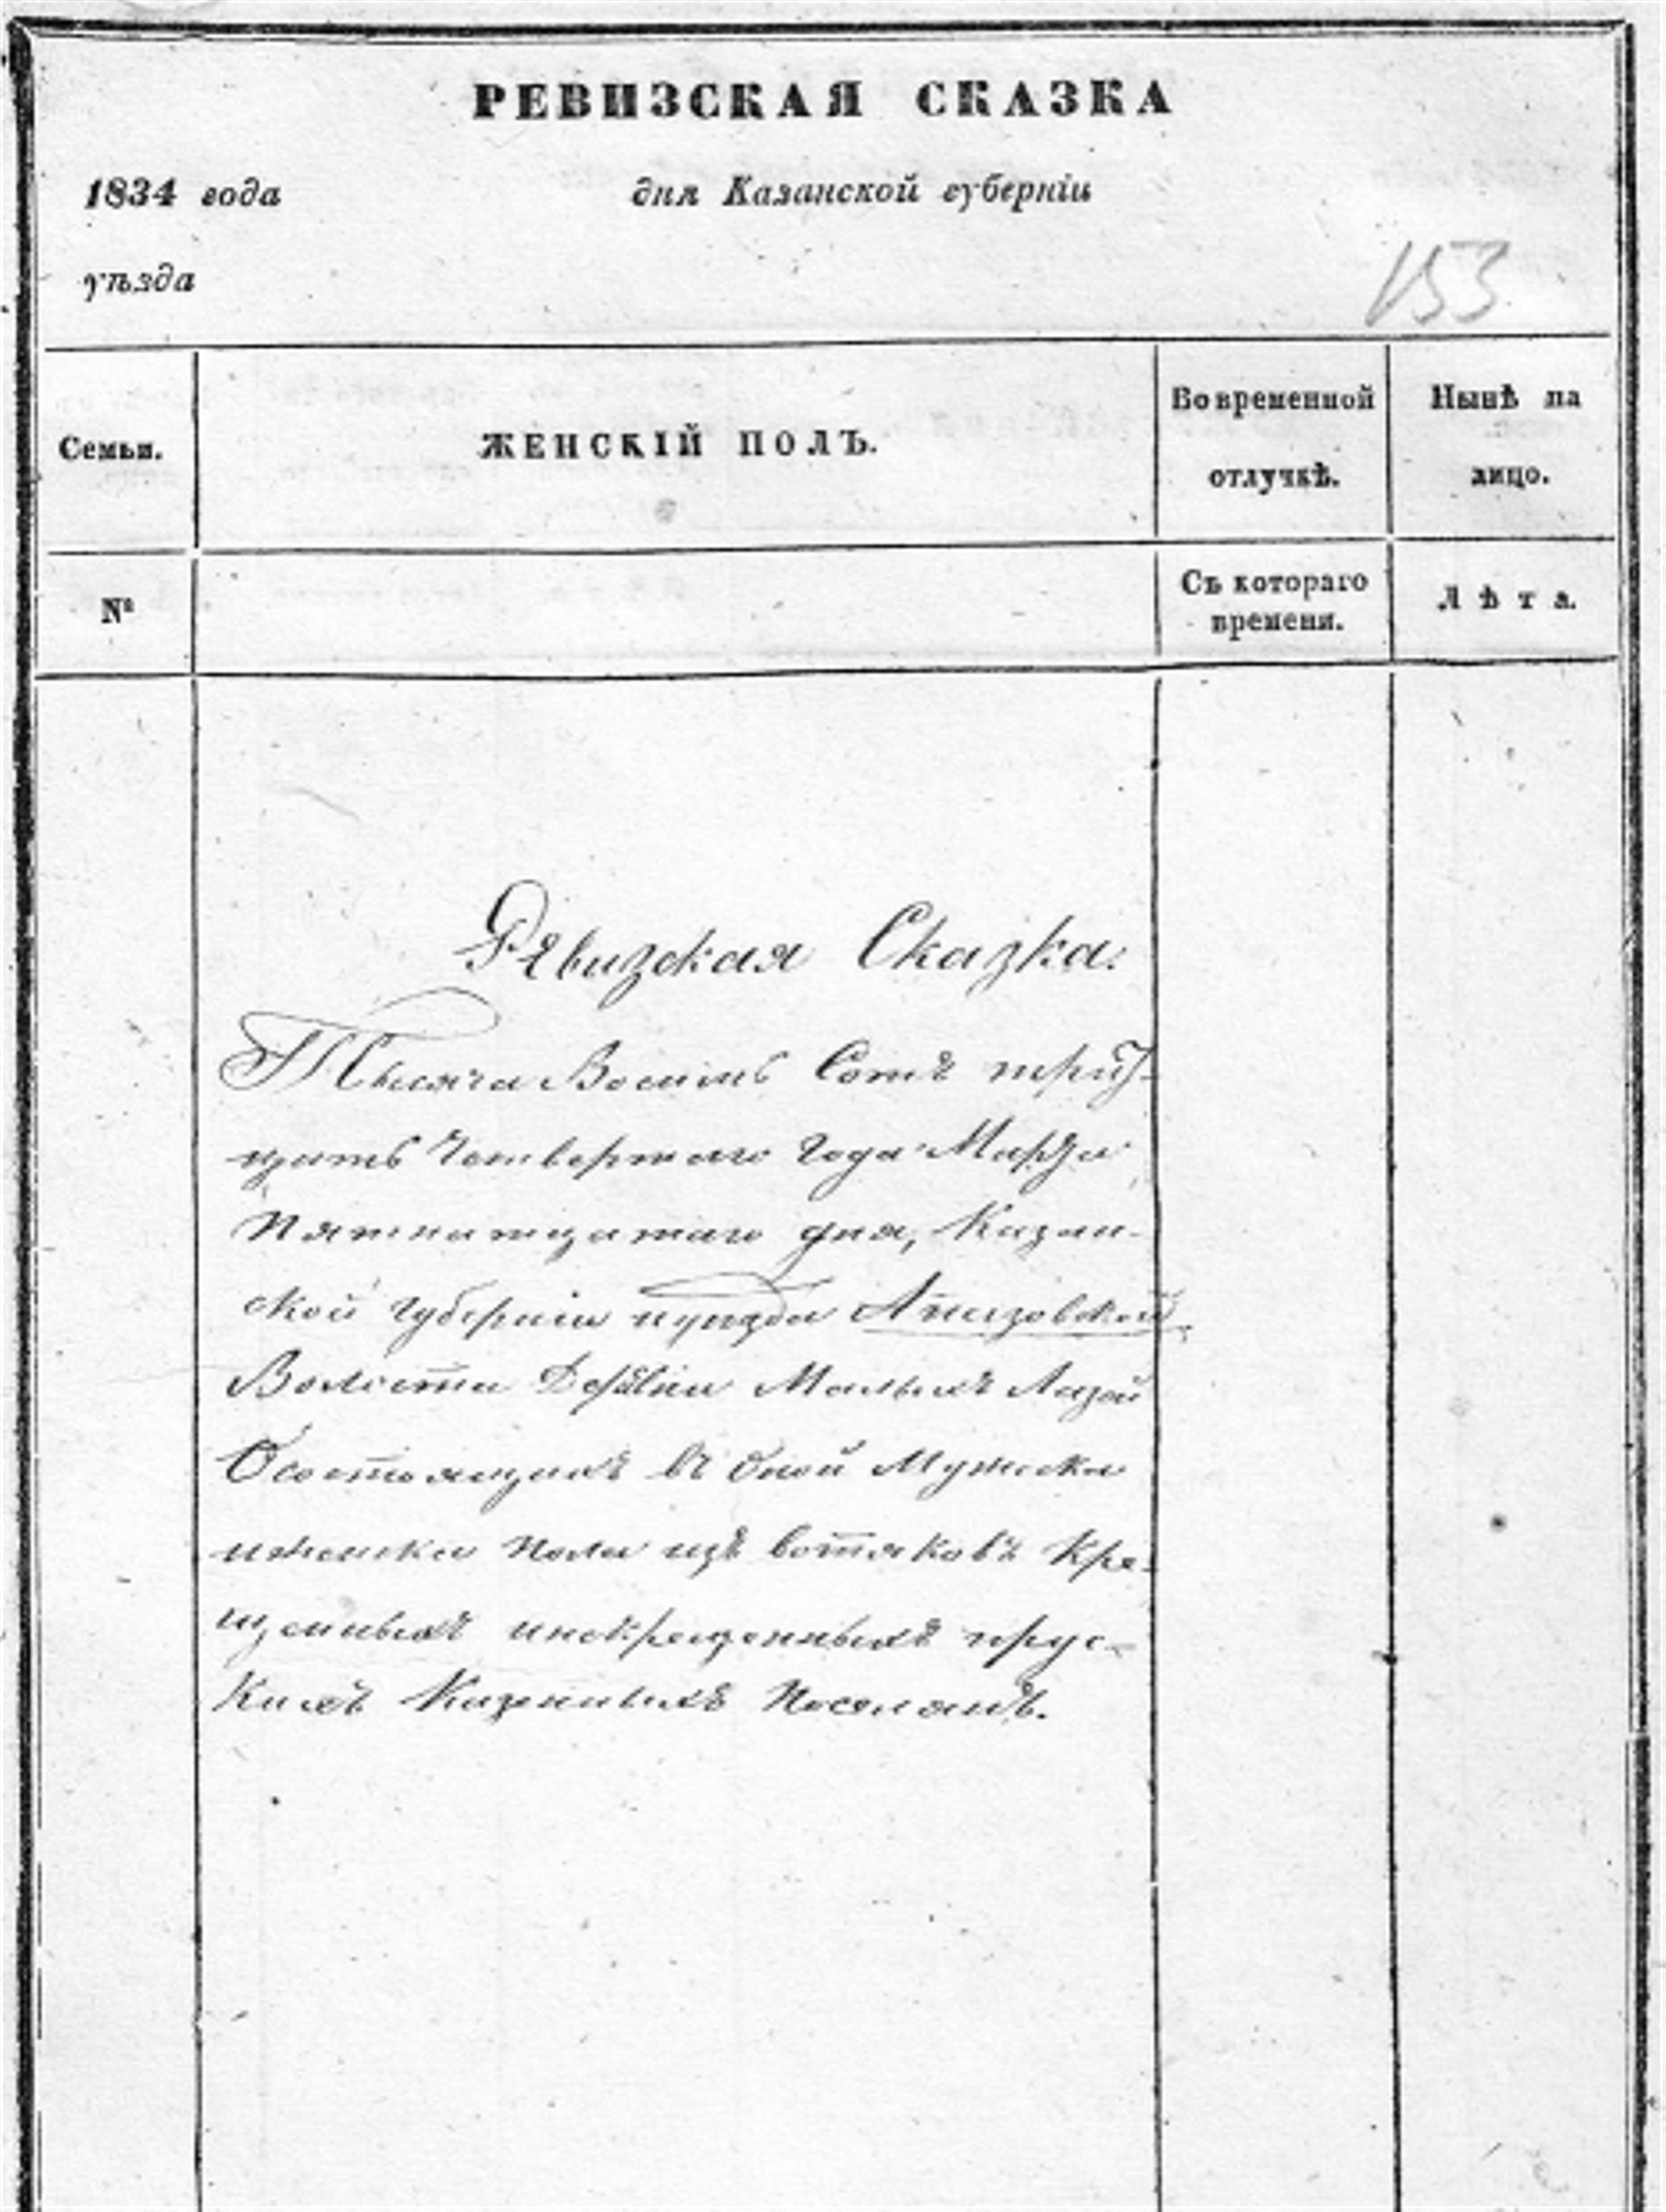 РЕВИЗСКАЯ СКАЗКА
1834 года дня Казанской губерніи
уѣзда
153
Семьи. ЖЕНСКІЙ ПОЛЪ. Во временной отлучкѣ. Нынѣ на лицо.
№ Съ котораго времени. Лѣта.
Ревизская Сказка.
Тысяча Восемь Сотъ трит-
цать Четвертаго Года Марта
Пятнатцатаго дня, Казан-
ской Губерніи иуѣзда
Волости Деревни Малыхъ Лызей
Осостоящихъ въ оной Мужеска
иженска пола изъ вотяковъ Кре-
щенныхъ инекрещенныхъ ирус-
кихъ Казенныхъ Поселянъ.